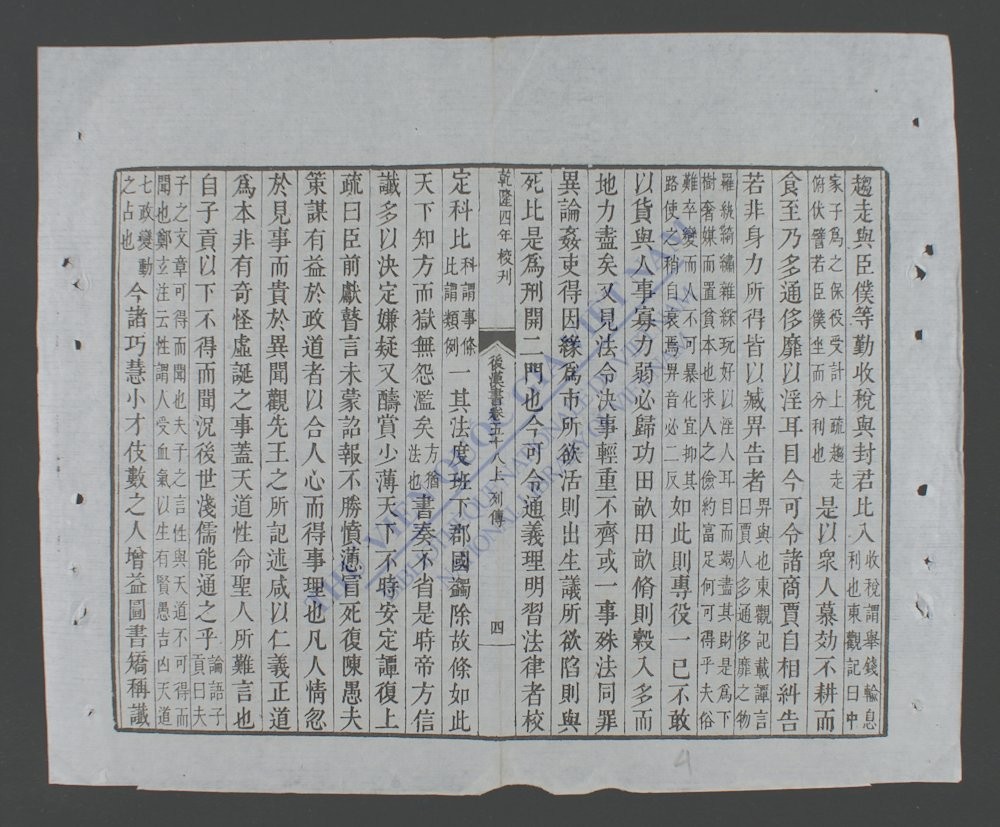 趨走與臣僕等勤收稅與封君比入收稅謂舉錢輸息利也東觀記曰中
家子爲之保役受計上疏趨走俯伏譬若臣僕坐而分利也是以衆人慕効不耕而
食至乃多通侈靡以淫耳目今可令諸商賈自相糾告
若非身力所得皆以臧畀告者畀與也東觀記載譚言曰賈人多通侈靡之物
羅紈綺繡雜綵玩好以淫人耳目而竭盡其財是爲下樹奢媒而置貧本也求人之儉約富足何可得乎夫俗
難卒變而人不可暴化宜抑其路使之稍自衰焉畀音必二反如此則專役一己不敢
以貨與人事寡力弱必歸功田畝田畝脩則穀入多而
地力盡矣又見法令決事輕重不齊或一事殊法同罪
異論姦吏得因緣爲市所欲活則出生議所欲陷則與
死比是爲刑開二門也今可令通義理明習法律者校
乾隆四年校刊 後漢書卷五十八上列傳 四
定科比科謂事條比謂類例一其法度班下郡國蠲除故條如此
天下知方而獄無怨濫矣方猶法也書奏不省是時帝方信
讖多以決定嫌疑又醻賞少薄天下不時安定譚復上
疏曰臣前獻瞽言未蒙詔報不勝憤懣冒死復陳愚夫
策謀有益於政道者以合人心而得事理也凡人情忽
於見事而貴於異聞觀先王之所記述咸以仁義正道
爲本非有奇怪虛誕之事蓋天道性命聖人所難言也
自子貢以下不得而聞況後世淺儒能通之乎論語子貢曰夫
子之文章可得而聞也夫子之言性與天道不可得而聞也鄭玄注云性謂人受血氣以生有賢愚吉凶天道
七政變動之占也今諸巧慧小才伎數之人增益圖書矯稱讖
THƯ VIỆN QUỐC GIA VIỆT NAM
BIBLIOTHEQUE NATIONALE DU VIETNAM
NATIONAL LIBRARY OF VIETNAM
4